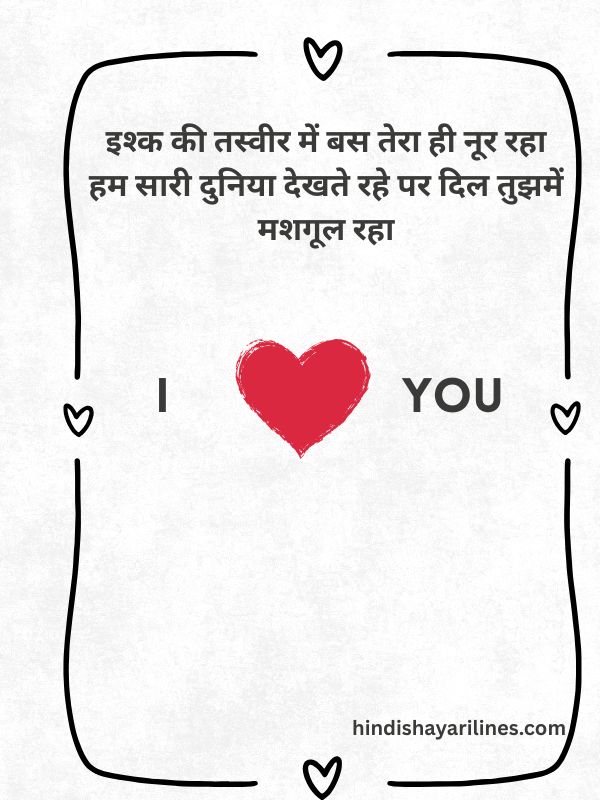 इश्क की तस्वीर में बस तेरा ही नूर रहा
हम सारी दुनिया देखते रहे पर दिल तुझमें
मशगूल रहा
I YOU
hindishayarilines.com